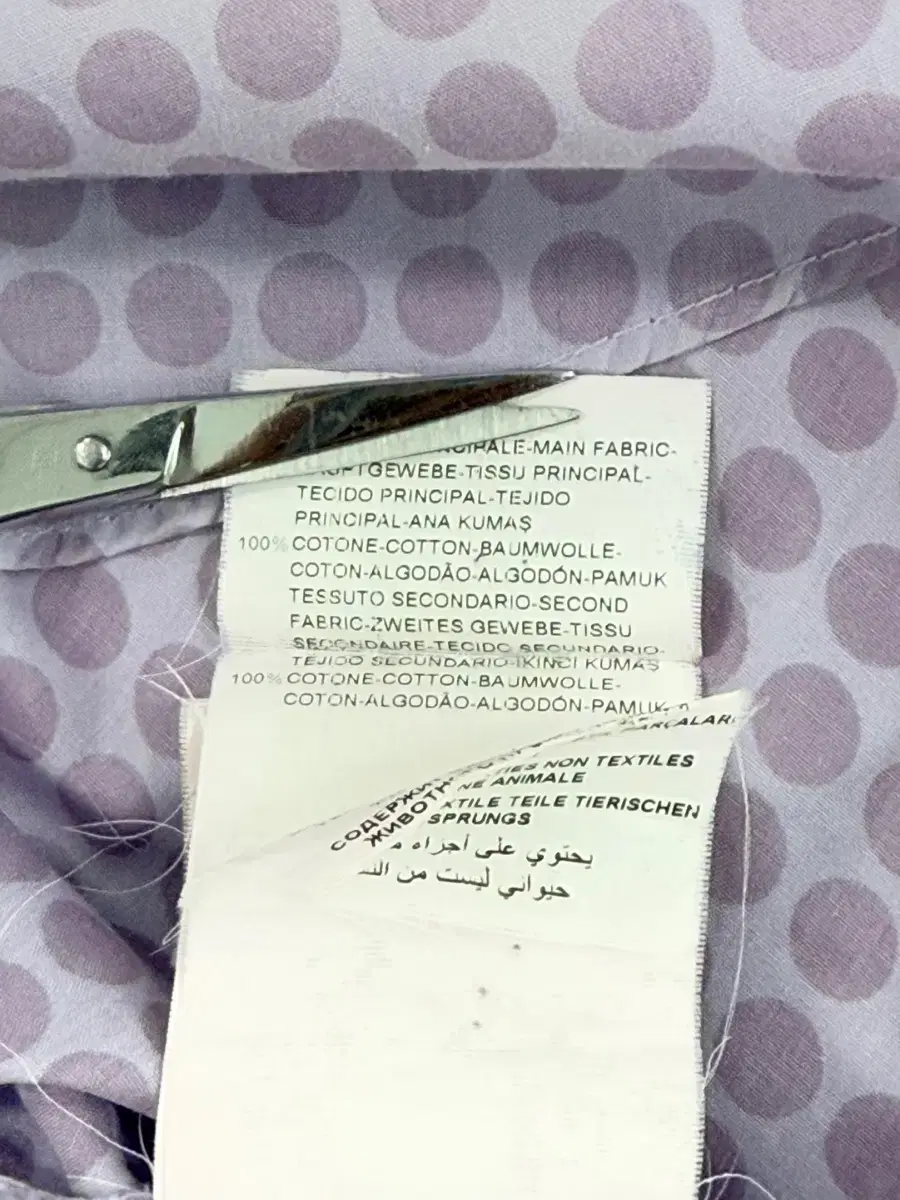 FABRIC-MAIN
TISSU PRINCIPAL-
TECIDO PRINCIPAL-TEJIDO
PRINCIPAL-ANA KUMAŞ
100% COTONE-COTTON-BAUMWOLLE-
COTON-ALGODÃO-ALGODÓN-PAMUK
TESSUTO SECONDARIO-SECOND
FABRIC-ZWEITES GEWEBE-TISSU
SECONDAIRE-TECIDO SECUNDARIO-
TEJIDO SECUNDARIO-IKINCI KUMAŞ
100% COTONE-COTTON-BAUMWOLLE-
COTON-ALGODÃO-ALGODÓN-PAMUK
NON TEXTILES
ANIMALE
TEILE TIERISCHEN
يحتوي على أجزاء
حيواني ليست من